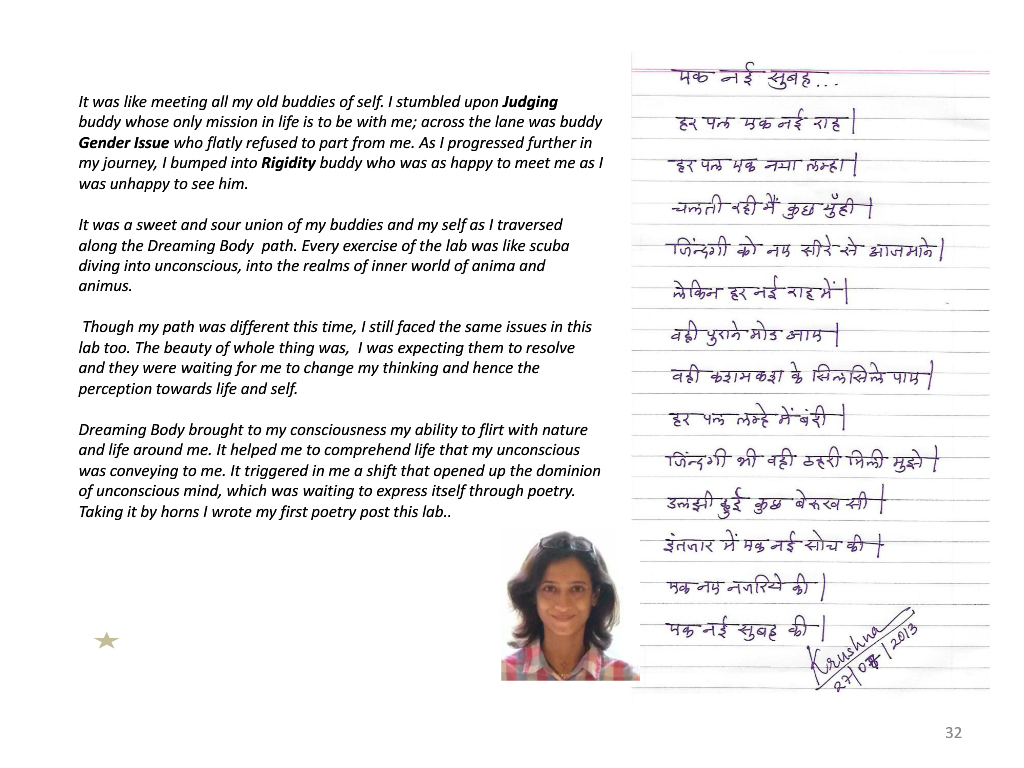 It was like meeting all my old buddies of self. I stumbled upon Judging
buddy whose only mission in life is to be with me; across the lane was buddy
Gender Issue who flatly refused to part from me. As I progressed further in
my journey, I bumped into Rigidity buddy who was as happy to meet me as I
was unhappy to see him.
It was a sweet and sour union of my buddies and my self as I traversed
along the Dreaming Body path. Every exercise of the lab was like scuba
diving into unconscious, into the realms of inner world of anima and
animus.
Though my path was different this time, I still faced the same issues in this
lab too. The beauty of whole thing was, I was expecting them to resolve
and they were waiting for me to change my thinking and hence the
perception towards life and self.
Dreaming Body brought to my consciousness my ability to flirt with nature
and life around me. It helped me to comprehend life that my unconscious
was conveying to me. It triggered in me a shift that opened up the dominion
of unconscious mind, which was waiting to express itself through poetry.
Taking it by horns I wrote my first poetry post this lab..
एक नई सुबह...
हर पल एक नई राह |
हर पल एक नया लम्हा |
चलती रही मैं कुछ युँही |
जिंन्दगी को नए सीरे से आजमाने |
लेकिन हर नई राह में |
वही पुराने मोड आए |
वही कशमकश के सिलसिले पाए |
हर पल लम्हे में बंदी |
जिंन्दगी भी वही ठहरी मिली मुझे |
उलझी हुई कुछ बेरूख सी |
इंतजार में एक नई सोच की |
एक नए नजरिये की |
एक नई सुबह की |
Krushna
27/ /2013
32